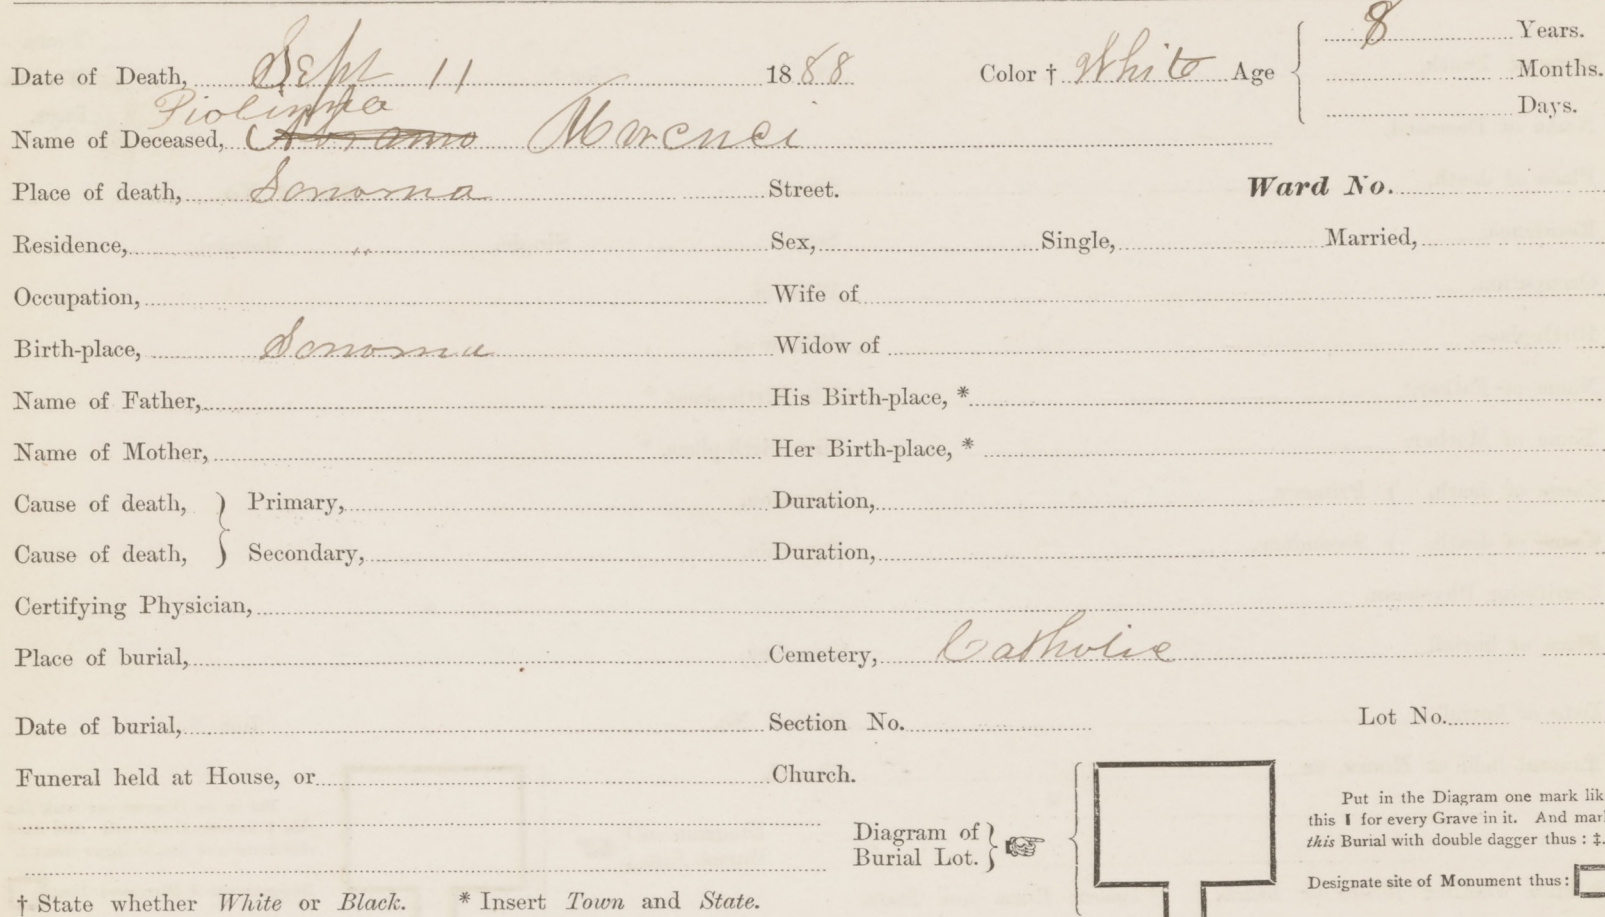 Date of Death, Sept 11 1888 Color † White Age 8 Years.
Months.
Days.
Name of Deceased, Abramo Marcucci
Place of death, Sonoma Street. Ward No.
Residence, " Sex, Single, Married,
Occupation, Wife of
Birth-place, Sonoma Widow of
Name of Father, His Birth-place, *
Name of Mother, Her Birth-place, *
Cause of death, } Primary, Duration,
Cause of death, } Secondary, Duration,
Certifying Physician,
Place of burial, Cemetery, Catholic
Date of burial, Section No. Lot No.
Funeral held at House, or Church.
Diagram of
Burial Lot.
Put in the Diagram one mark lik
this I for every Grave in it. And mar
this Burial with double dagger thus : ‡.
Designate site of Monument thus :
† State whether White or Black. * Insert Town and State.